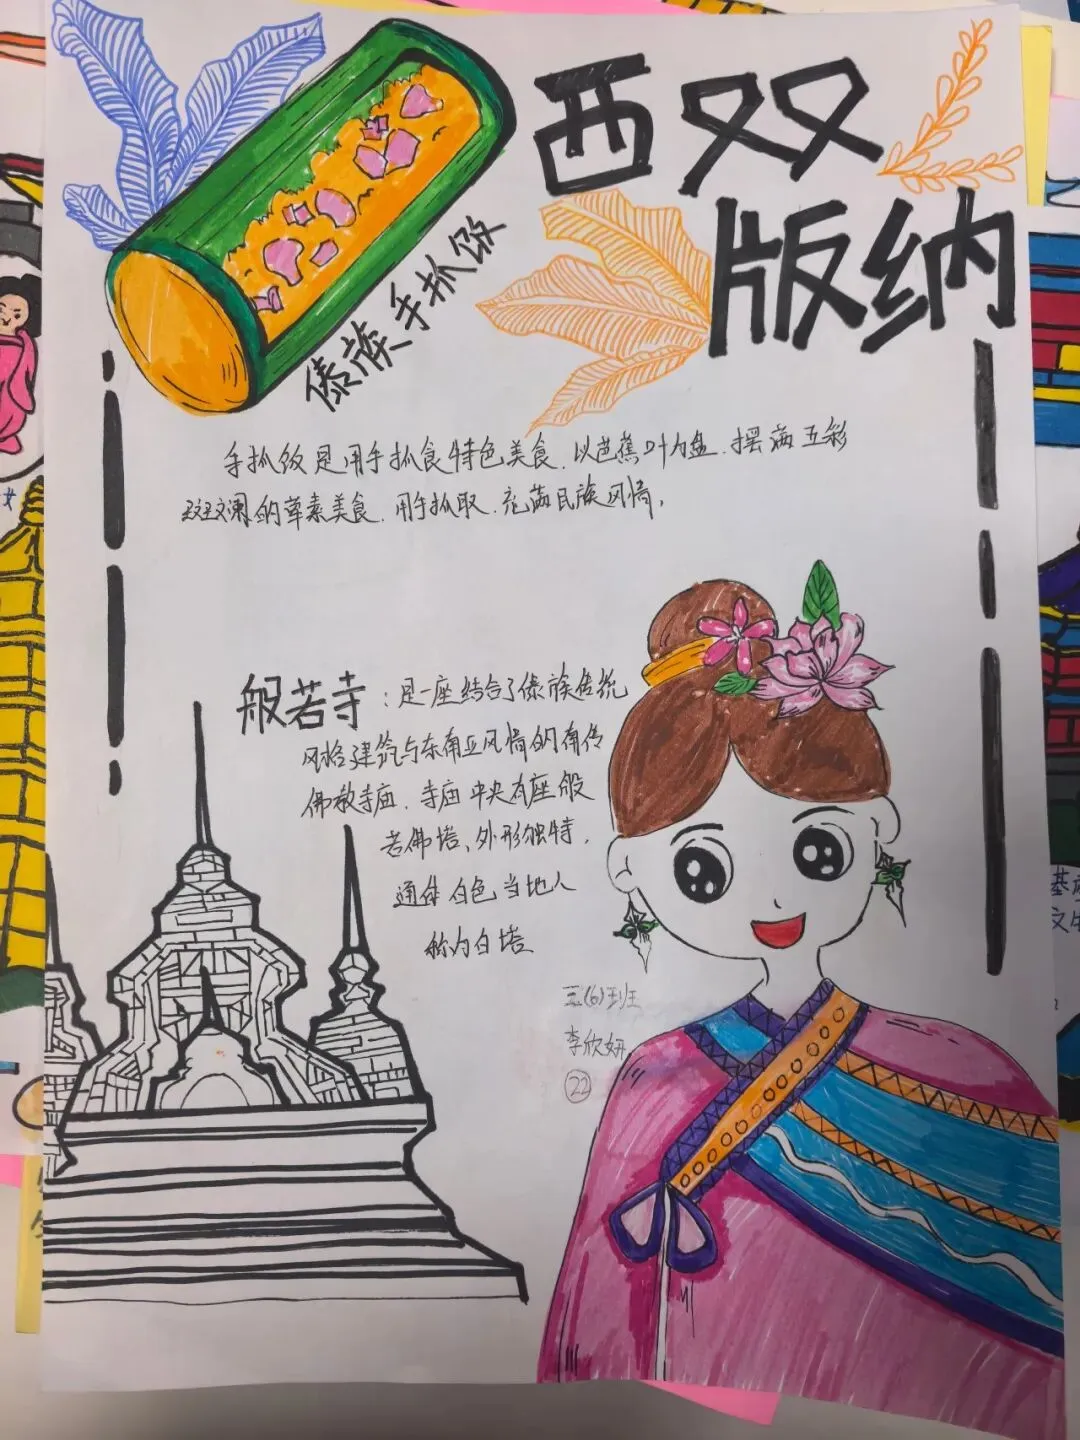 西双
版纳
傣族手抓饭
手抓饭是用手抓食特色美食,以芭蕉叶为盘,摆满五彩
斑斓的荤素美食,用手抓取,充满民族风情。
般若寺:是一座结合了傣族传统
风格建筑与东南亚风情的南传
佛教寺庙,寺庙中央有座般
若佛塔、外形独特,
通体白色当地人
称为白塔
三(6)班
李欣妍
22
基
文